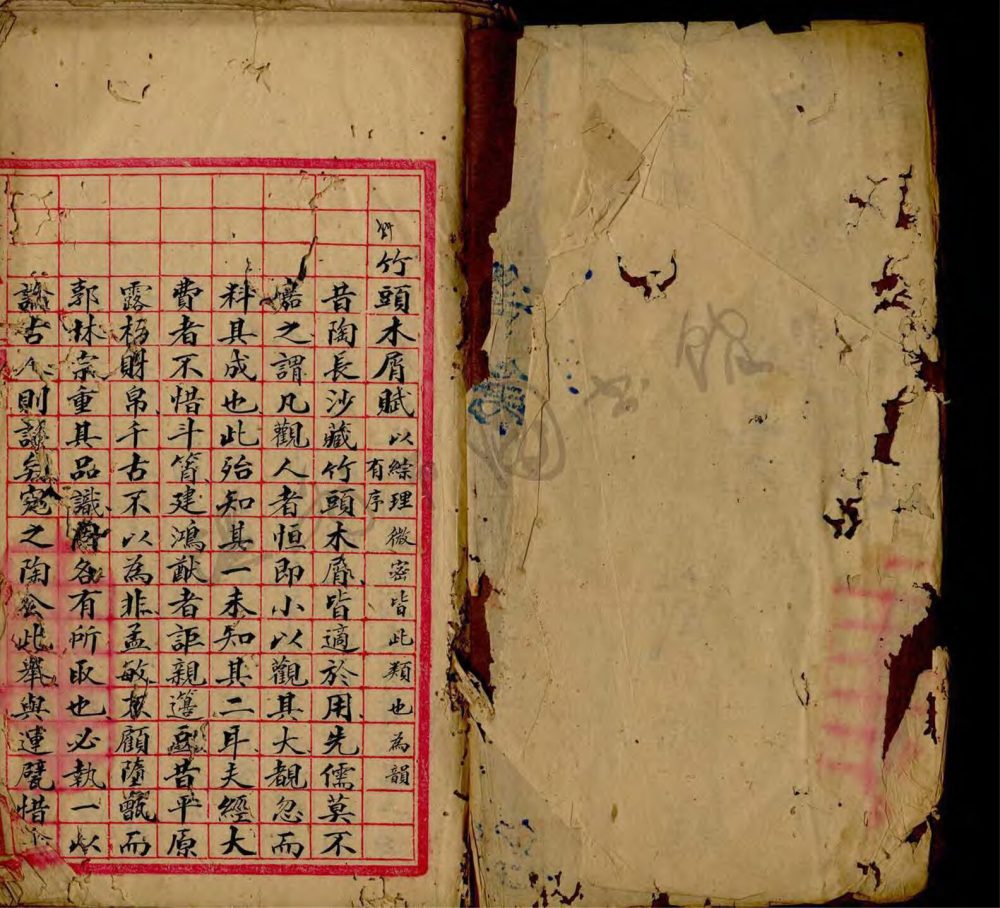 竹頭木屑賦 以綜理微密皆此類也為韻 有序
昔陶長沙藏竹頭木屑皆適於用先儒莫不
嘉之謂凡觀人者恒即小以觀其大覩忽而
料其成也此殆知其一未知其二耳夫經大
費者不惜斗筲建鴻猷者詎親籩豆昔平原
露財帛千古不以為非孟敏顧墮甑而
郭林宗重其品識各有所取也必執一以
古人則謬矣之陶公此舉與運甓惜